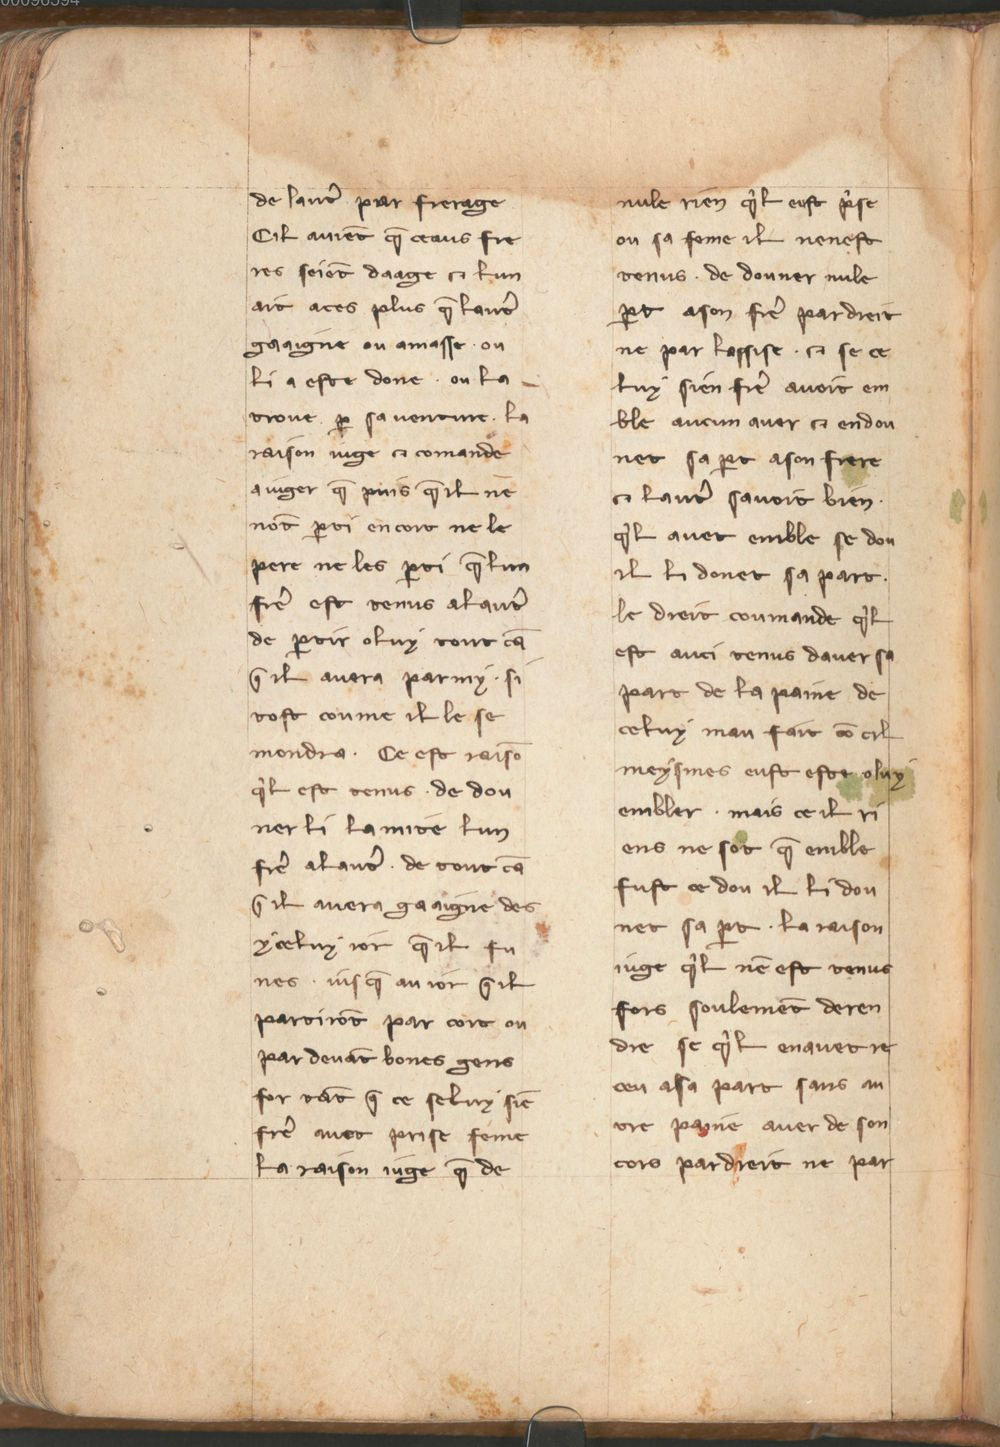 00096594
de lautr̃ par frerage
Cil auient̃ que ceaus fre
res seiẽt daage et lun
ait aces plus que lautr̃
gaaigne ou amasse · ou
li a este done · ou la
troue per sa uenture · la
raison iuge et comande
a iuger que puis que il ne
nõt parti encort ne le
pere ne les parti que lun
frẽ est tenus a lautr̃
de partir o luy tout cã
que il auera parmy · si
tost coume il le se
mondra · Ce est raisõ
quil est tenus · de dou
ner li la mite lun
frẽ a lautr̃ · de tout cã
que il auera gaaigne des
yceluy ior que il fu
nes · iusque au ior que il
partirõt par cort ou
par deuãt bones gens
for tãt que ce seluy siẽ
frẽ auet prise feme
La raison iuge que de
nule rien quil eust prise
ou sa feme il nen est
tenus · de douner nule
part a son frẽ par dreit
ne par lassise · et se ce
luy sien frẽ auoit em
ble aucun auer et en dou
net sa part a son frere
et lautr̃ sauoit bien ·
quil auet emble se dou
il li donet sa part ·
le dreit coumande quil
est auci tenus dauer sa
part de la paine de
celuy mau fait cõ cil
meysmes eust este o luy
embler · mais ce il ri
ens ne sot que emble
fust ce dou il li dou
net sa part · la raison
iuge quil nẽ est tenus
fors soulemẽt de ren
dre se quil en auet re
ceu a sa part sans au
tre paine auer de son
cors par dreit ne par